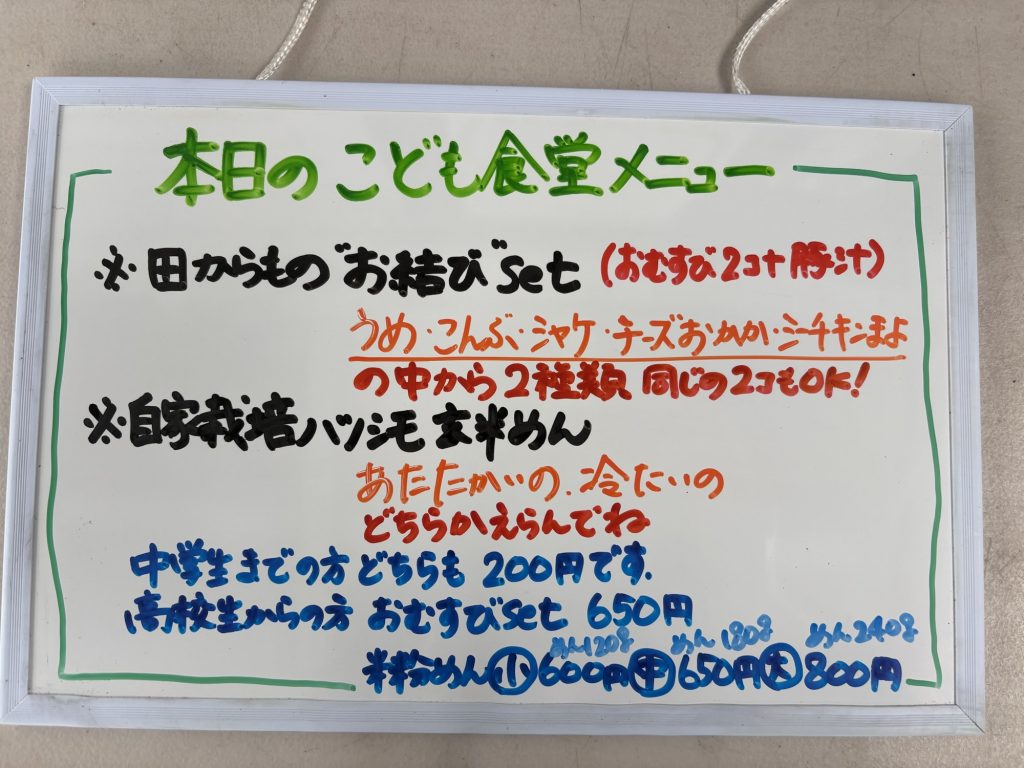 本日のこども食堂メニュー
※田からもの"お結び"set (おむすび2コ+豚汁)
うめ・こんぶ・シャケ・チーズおかか・シーチキンまよ
の中から2種類 同じの2コもOK!
※自家栽培ハツシモ玄米めん
あたたかいの、冷たいの
どちらかえらんでね
中学生までの方 どちらも 200円です。
高校生からの方 おむすびset 650円
めん120g めん180g めん240g
米粉めん 小 600円 中 650円 大 800円